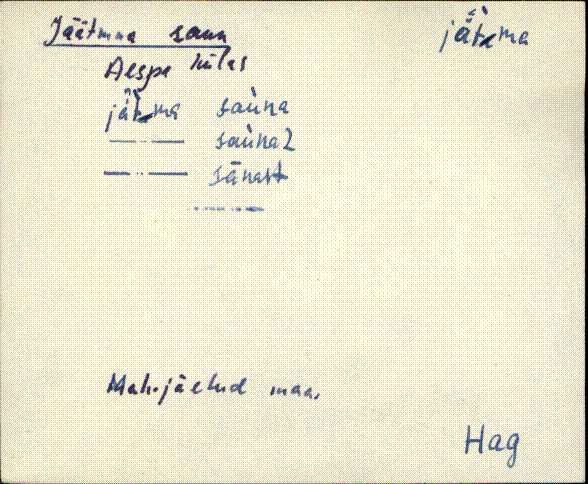 Jäätmaa saun
jätma
Aespa külas
jätma saùna
— · — saùnal
— ·· — sānast
Mahajäetud maa.
Hag